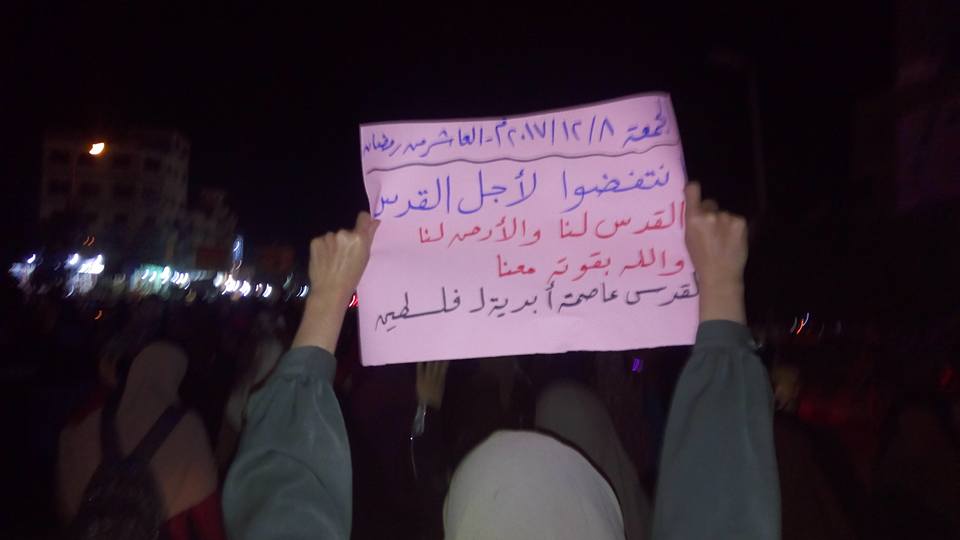 لجمعة ٢٠١٧/١٢/٨م - العاشر من رمضان
نتفضوا لأجل القدس
القدس لنا والأرض لنا
والله بقوته معنا
لقدس عاصمة أبدية لـ فلسطين